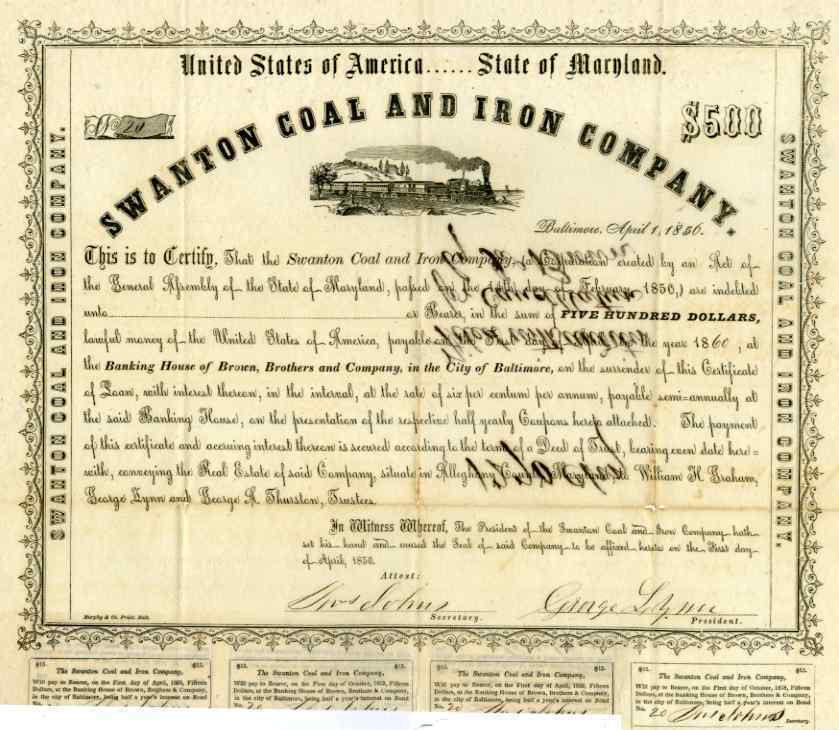 United States of America...... State of Maryland.
No 20
$500
SWANTON COAL AND IRON COMPANY.
SWANTON COAL AND IRON COMPANY.
SWANTON COAL AND IRON COMPANY.
Baltimore, April 1, 1856.
This is to Certify, That the Swanton Coal and Iron Company, (a Corporation created by an Act of
the General Assembly of the State of Maryland, passed on the day of February 1850,) are indebted
unto or Bearer, in the sum of FIVE HUNDRED DOLLARS,
lawful money of the United States of America, payable on the First day of the year 1860, at
the Banking House of Brown, Brothers and Company, in the City of Baltimore, on the surrender of this Certificate
of Loan, with interest thereon, in the interval, at the rate of six per centum per annum, payable semi-annually at
the said Banking House, on the presentation of the respective half yearly Coupons hereto attached. The payment
of this certificate and accruing interest thereon is secured according to the terms of a Deed of Trust, bearing even date here-
with, conveying the Real Estate of said Company, situate in Alleghany County Maryland, to William H. Graham,
George Lynn and George A. Thurston, Trustees.
In Witness Whereof, The President of the Swanton Coal and Iron Company hath
set his hand and caused the Seal of said Company to be affixed hereto on the First day
of April, 1856.
Attest:
Secretary.
George Lynn
President.
Murphy & Co. Print. Balt.
$15. $15.
The Swanton Coal and Iron Company,
Will pay to Bearer, on the First day of April, Fifteen
Dollars, at the Banking House of Brown, Brothers & Company,
in the city of Baltimore, being half a year's interest on Bond
$15. $15.
The Swanton Coal and Iron Company,
Will pay to Bearer, on the First day of October, Fifteen
Dollars, at the Banking House of Brown, Brothers & Company,
in the city of Baltimore, being half a year's interest on Bond
No. 20
$15. $15.
The Swanton Coal and Iron Company,
Will pay to Bearer, on the First day of April, Fifteen
Dollars, at the Banking House of Brown, Brothers & Company,
in the city of Baltimore, being half a year's interest on Bond
No. 20
$15. $15.
The Swanton Coal and Iron Company,
Will pay to Bearer, on the First day of October, Fifteen
Dollars, at the Banking House of Brown, Brothers & Company,
in the city of Baltimore, being half a year's interest on Bond
No. 20
Secretary.